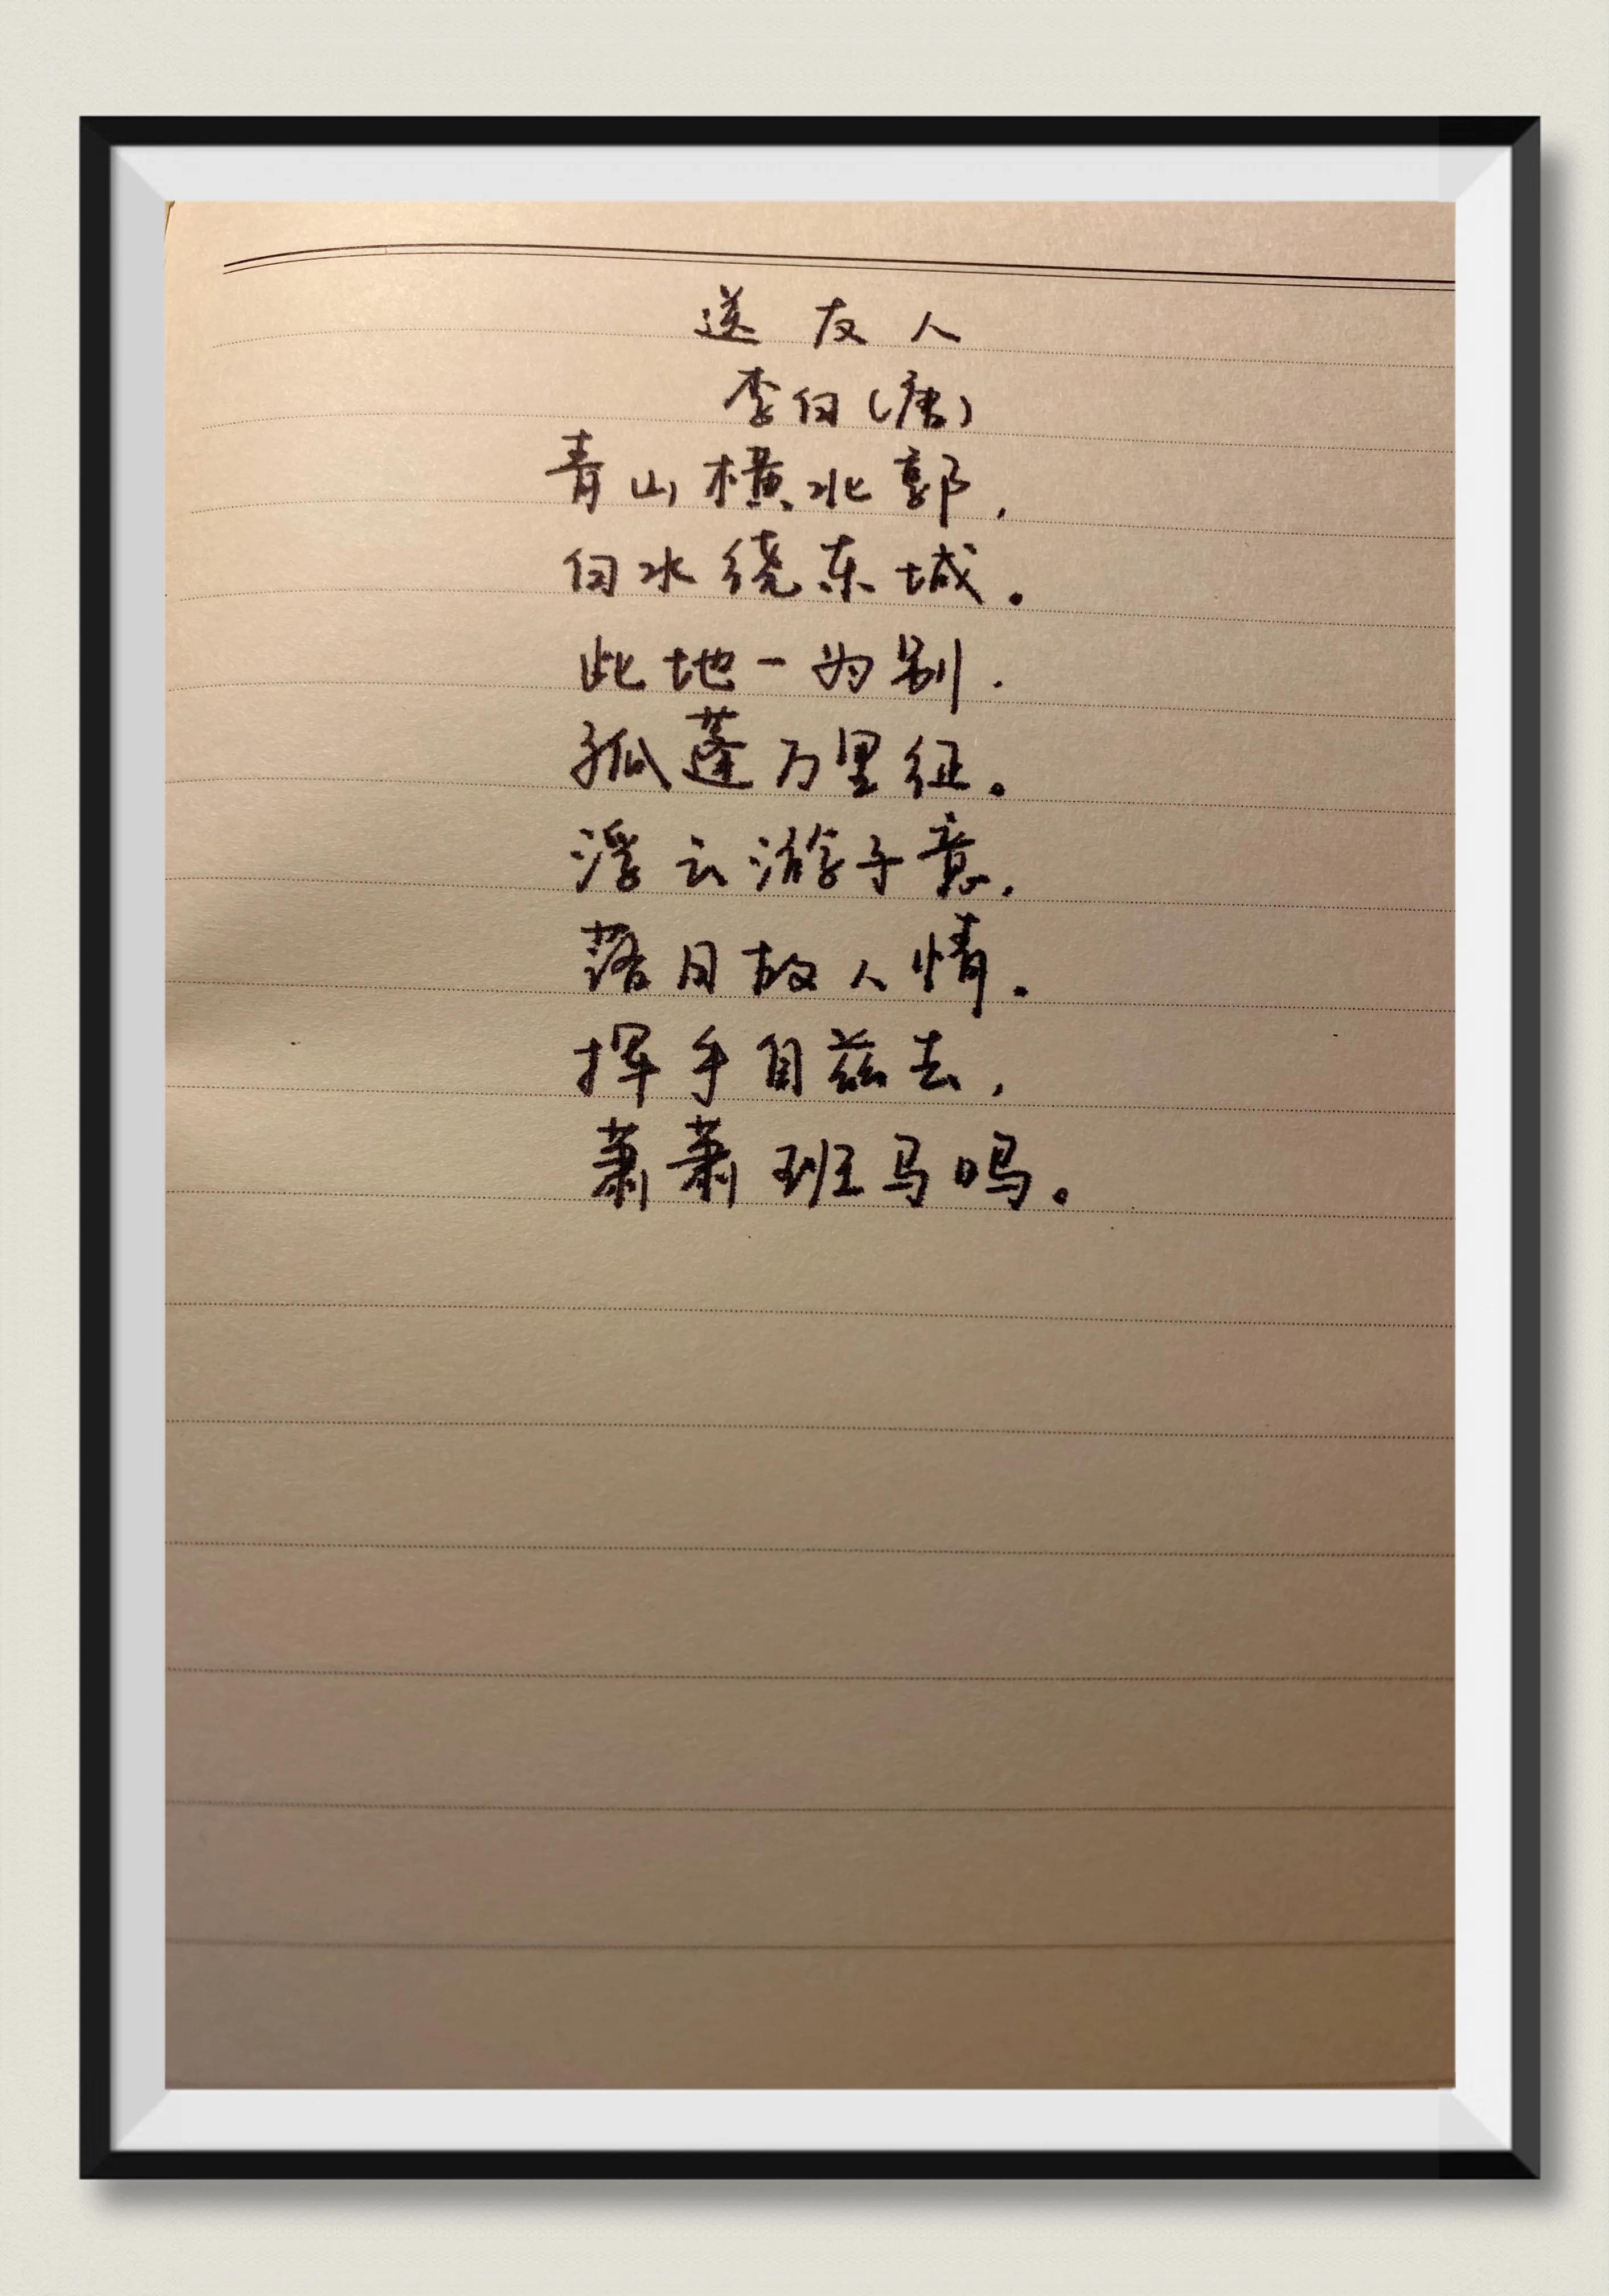 送友人
李白(唐)
青山横北郭,
白水绕东城.
此地一为别.
孤蓬万里征.
浮云游子意.
落日故人情.
挥手自兹去,
萧萧班马鸣.